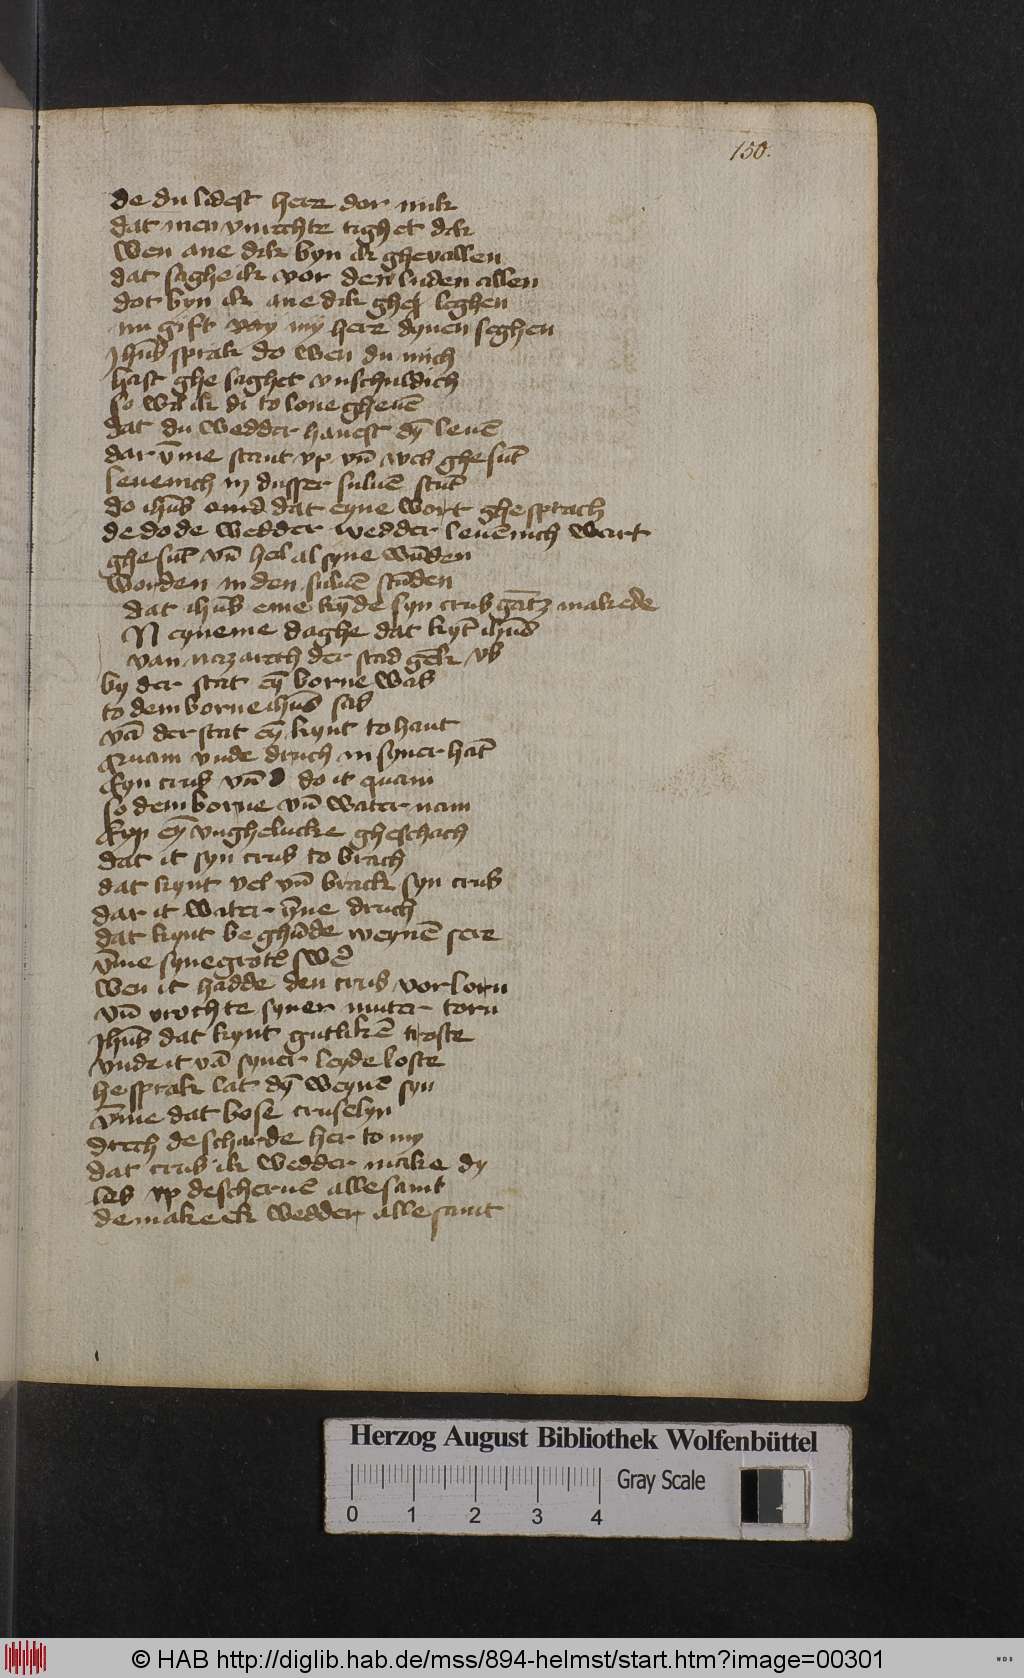 150.
de du lidest here dor mik
dat men vnrechte tighet dik
wen ane dik byn ik ghevallen
dat saghe ik vor den luden allen
dot byn ik ane dik gheleghen
nu gift my here dynen seghen
Jhūs sprak do wen du mich
hast ghe saghet vnschuldich
so wil ik di to lone gheuē
dat du wedder hauest dȳ leuē
dar v̄me stant vp vn̄ wes ghe sūt
leuenich in dusser suluē stūt
do ihūs dat eyne wort ghe sprach
de dode wedder wedder leuēnich wart
ghe sūt vn̄ hel al syne wūden
worden in den suluē stūden
dat ihūs eme kȳde syn crus gātz makede
N eyneme daghe dat kȳt ihūs
van nazareth der stad gēk vs
by der stat eȳ borne was
to dem borne ihūs sas
vā der stat eȳ kynt to hant
quam vnde druch in syner hāt
Eyn crus vn̄ do it quam
so dem borne vn̄ water nam
eȳ vnghelucke gheschach
dat it syn crus to brach
dat kynt vel vn̄ brack syn crus
dar it water ȳne druch
dat kynt be ghūde weynē sere
v̄me syne grote swe
wen it hadde den crus vorlorn
vn̄ vrochte syner muter torn
Jhūs dat kynt gutlikē troste
vnde it vā syner leyde loste
he sprak lat dȳ weynē syn
v̄me dat bose cruselyn
drech de scharde her to my
dat crus ik wedder make dy
les vp de scheruē alle samt
de make ek wedder alle samt
Herzog August Bibliothek Wolfenbüttel
Gray Scale
0 1 2 3 4
© HAB http://diglib.hab.de/mss/894-helmst/start.htm?image=00301